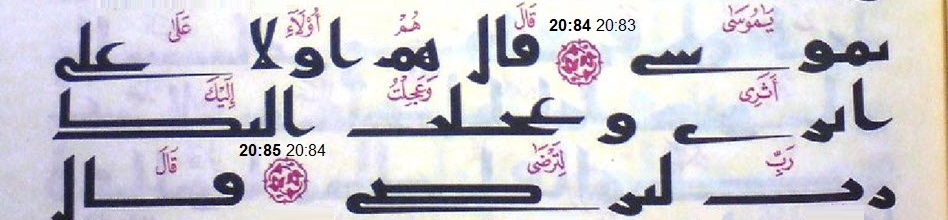 يَٰمُوسَىٰ قَالَ هُمْ أُوْلَآءِ عَلَىٰ
يموسى 20:84 20:83 قال هم اولا على
أَثَرِى وَعَجِلْتُ إِلَيْكَ
اثرى وعجلت اليك
رَبِّ لِتَرْضَىٰ 20:85 20:84 قَالَ
رب لترضى قال